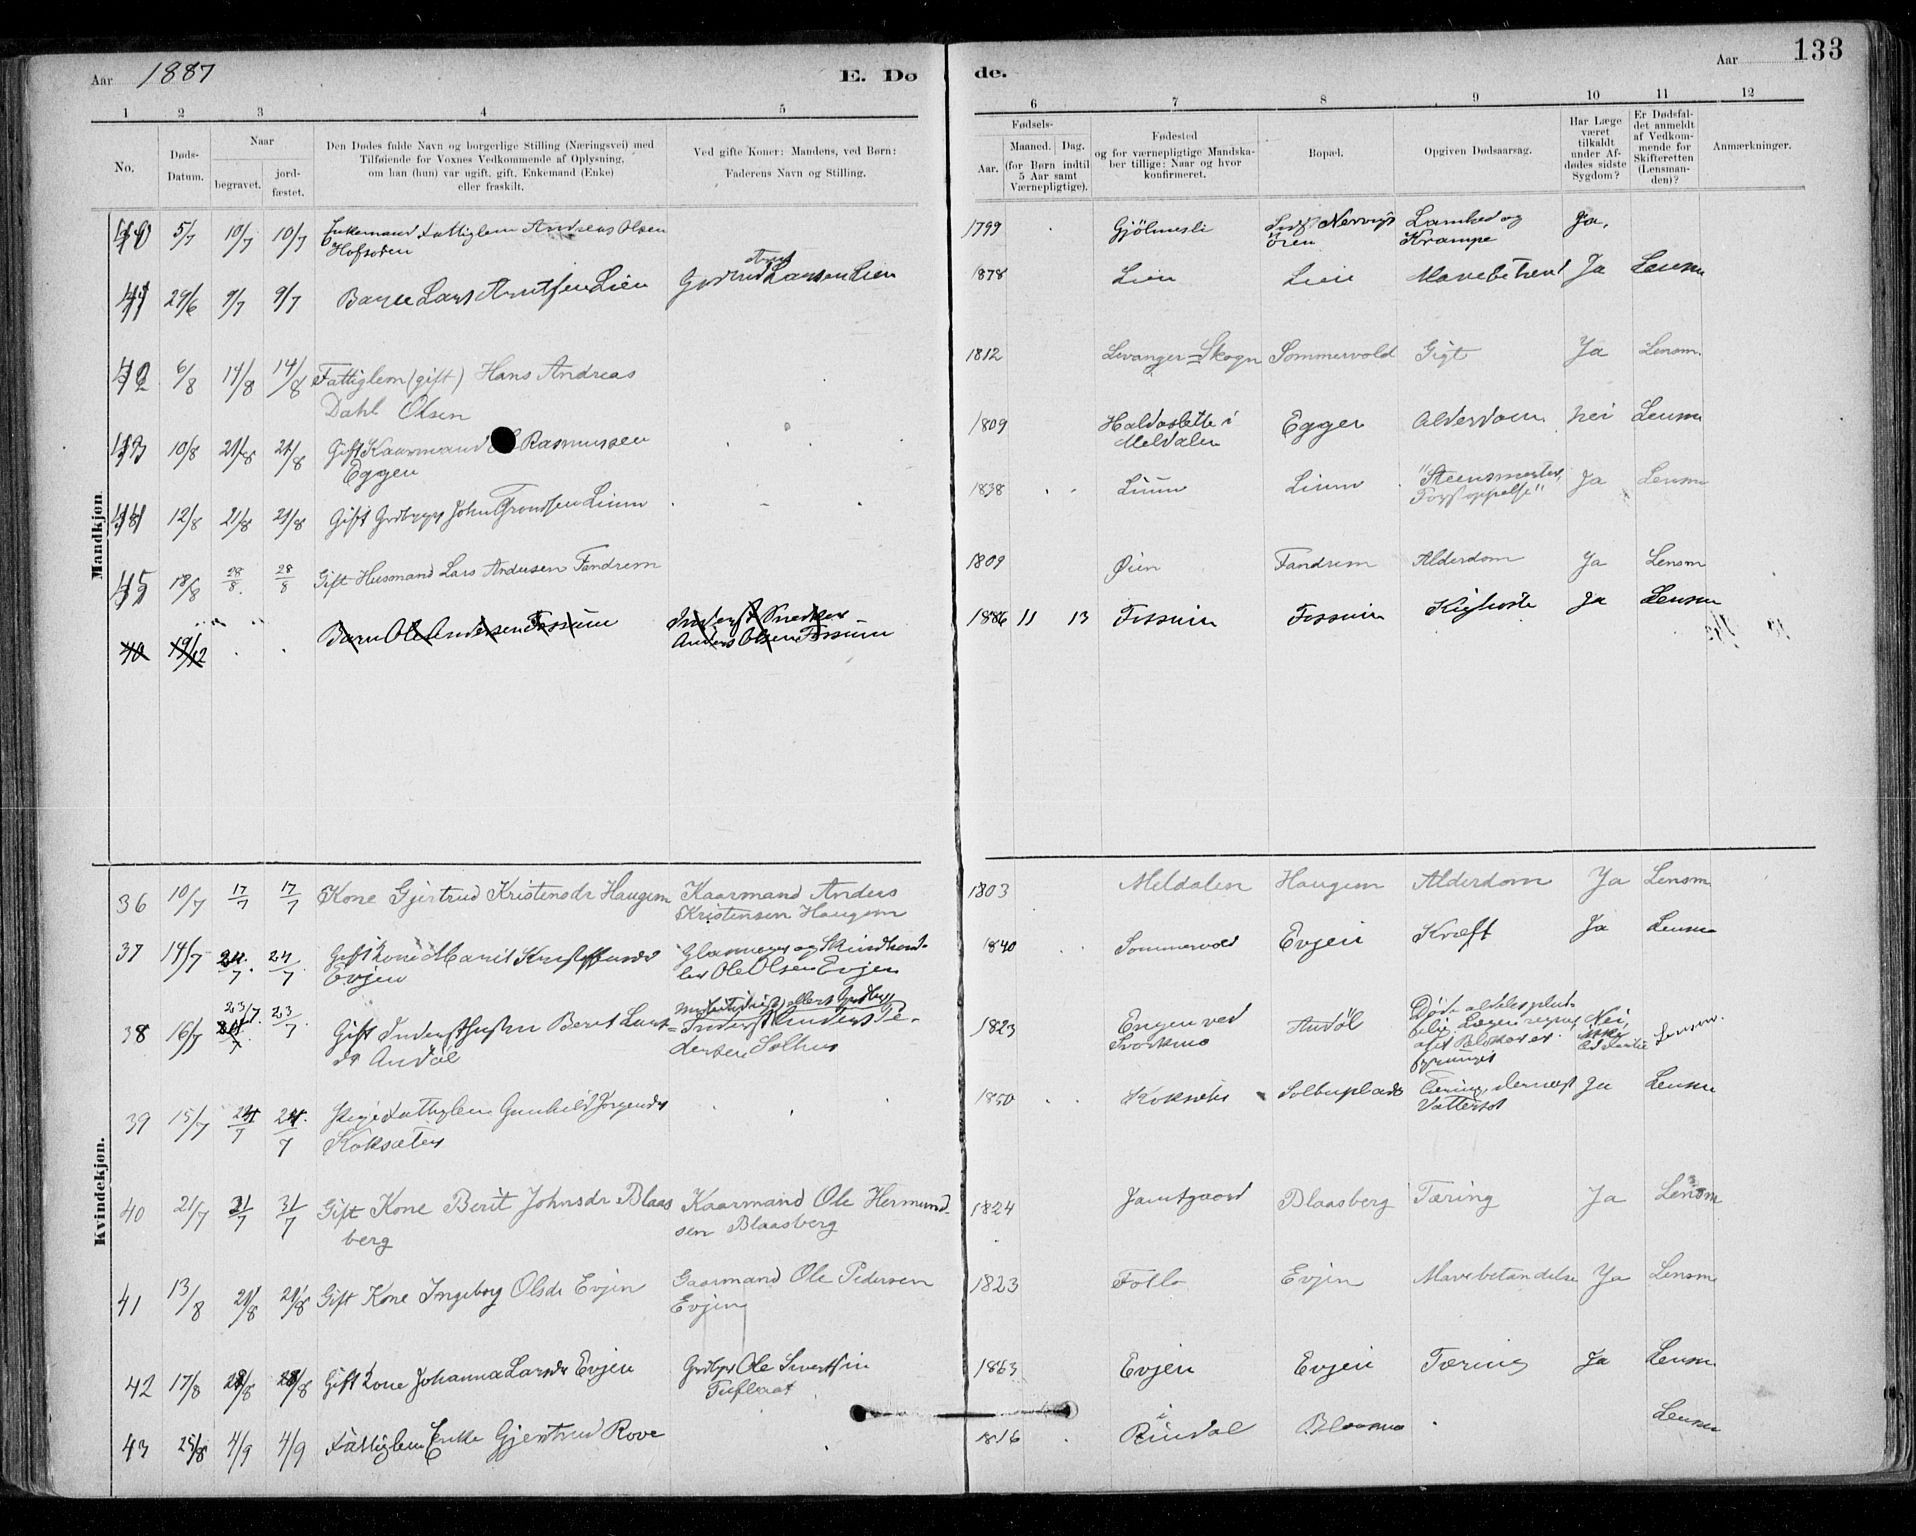 Aar 1887
E. Dø
de.
Aar
133
1 2 3 4 5 6 7 8 9 10 11 12
No.
Døds-
Datum.
Naar
begravet.
jord-
fæstet.
Den Dødes fulde Navn og borgerlige Stilling (Næringsvei) med
Tilføiende for Voxnes Vedkommende af Oplysning,
om han (hun) var ugift, gift, Enkemand (Enke)
eller fraskilt.
Ved gifte Koner: Mandens, ved Børn:
Faderens Navn og Stilling.
Fødsels-
Aar.
Maaned.
Dag.
(for Børn indtil
5 Aar samt
Værnepligtige).
Fødested
og for værnepligtige Mandska-
ber tillige: Naar og hvor
konfirmeret.
Bopæl.
Opgiven Dødsaarsag.
Har Læge
været
tilkaldt
under Af-
dødes sidste
Sygdom?
Er Dødsfal-
det anmeldt
af Vedkom-
mende for
Skifteretten
(Lensman-
den)?
Anmærkninger.
Mandkjøn.
5/7 10/7 10/7 Enkemand Fattiglem Andreas Olsen 1799 Gjölmesli Ja,
Hofsören Ören Krampe
41 29/6 9/7 9/7 Barn Lars Arntsen Lien Larsen Lien 1878 Lien Lien Ja Lensm
42 6/8 14/8 14/8 Fattiglem (gift) Hans Andreas 1812 Levanger-Skogn Sommervold Gigt Ja Lensm.
Dahl Olsen
43 10/8 21/8 21/8 Gift Kaarmand Rasmussen 1809 Haldoslette i Eggen Alderdom nei Lensm
Eggen Meldalen
44 12/8 21/8 21/8 Gift Grdbrgr John Trondsen Lium 1838 Lium Lium "Steensmerter, Ja Lensm
Forstoppelse"
45 18/8 28/8 28/8 Gift Husmand Lars Andersen Fandrem 1809 Øien Fandrem Alderdom Ja Lensm
40 19/12 Barn Ole Andersen Fossum Inderst Snedker 1886 11 13 Fossum Fossum Kighoste Ja Lensm
Anders Olsen Fossum
Kvindekjøn.
36 10/7 17/7 17/7 Kone Gjertrud Kristensdr Haugem Kaarmand Anders 1803 Meldalen Haugem Alderdom Ja Lensm
Kristensen Haugem
37 14/7 24/7 24/7 Gift Kone Marit Kristoffersdr Glarmester og Skindhand- 1840 Sommervold Evjen Kræft Ja Lensm
Evjen ler Ole Olsen Evjen
38 16/7 23/7 23/7 Gift Berit Lars- Inderst Anders Pe- 1823 Engen ved Andöl Nei Lensm.
dr Andöl dersen Solhus Svorkmo
39 15/7 24/7 24/7 Pige Fattiglem Gunhild Jørgensdr 1850 Koksæter Tæring, dernæst Ja Lensm
Koksæter Vattersot
40 21/7 31/7 31/7 Gift Kone Berit Johnsdr Blaas Kaarmand Ole Hermund- 1824 Jamtgaard Blaasberg Tæring Ja Lensm
berg sen Blaasberg
41 13/8 21/8 21/8 Gift Kone Ingeborg Olsdr Evjen Gaarmand Ole Pedersen 1823 Follo Evjen Mavebetændelse Ja Lensm
Evjen
42 17/8 28/8 28/8 Gift Kone Johanna Larsdr Evjen Grdbrgr Ole Sivertsen 1863 Evjen Evjen Tæring Ja Lensm
43 25/8 4/9 4/9 Fattiglem Enke Gjertrud Rove 1816 i Rindal Blaasmo Lensm